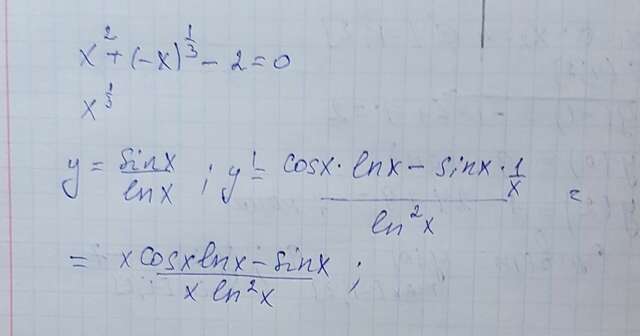 x² + (-x)^(1/3) - 2 = 0
x^(1/3)
y = sinx / lnx ; y' = (cosx · lnx - sinx · 1/x) / ln²x =
= (x cosx lnx - sinx) / (x ln²x) ;